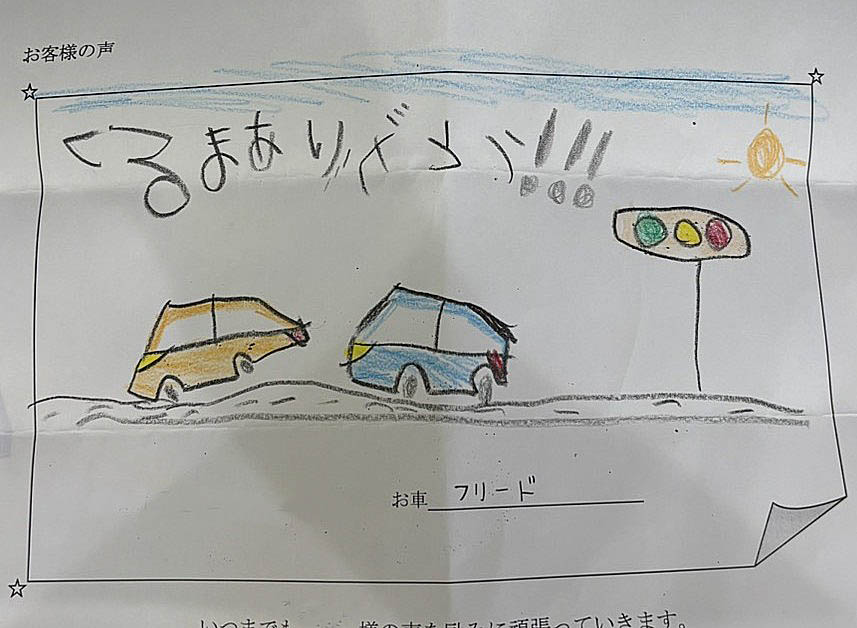 お客様の声
くるまありがとう!!!
お車 フリード
いつまでも 様の声を励みに頑張っていきます。